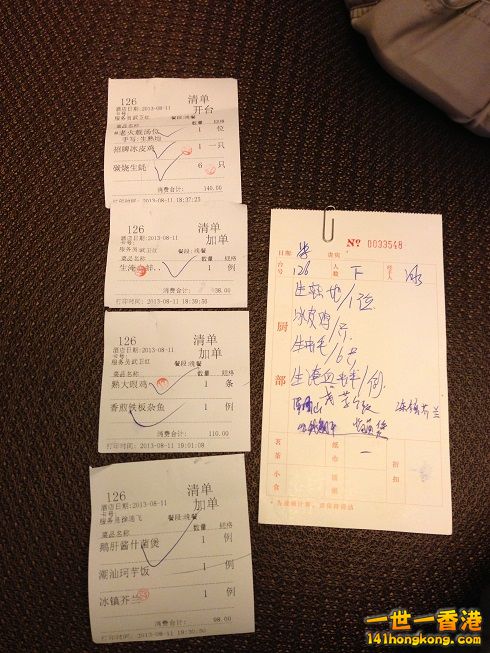 126 清单
开台
酒店日期:2013-08-11
卡号:
服务员:武卫红 餐段:晚餐
菜品名称 数量 规格
#老火靓汤位 1 位
手写:生熟地
招牌冰皮鸡 1 一只
碳烧生蚝 6 只
消费合计: 140.00
打印时间:2013-08-11 18:37:25
126 清单
加单
酒店日期:2013-08-11
卡号:
服务员:武卫红 餐段:晚餐
菜品名称 数量 规格
1 例
消费合计: 38.00
打印时间:2013-08-11 18:39:50
126 清单
加单
酒店日期:2013-08-11
卡号:
服务员:武卫红 餐段:晚餐
菜品名称 数量 规格
熟大眼鸡 1 条
香煎铁板杂鱼 1 例
消费合计: 110.00
打印时间:2013-08-11 19:01:08
126 清单
加单
酒店日期:2013-08-11
卡号:
餐段:晚餐
菜品名称 数量 规格
鹅肝酱什菌煲 1 例
潮汕珂芋饭 1 例
冰镇芥兰 1 例
消费合计: 98.00
打印时间:2013-08-11
№ 0033548
日期
台号 126 人数 下 经手人
厨部
生熟地/1位
冰皮鸡/1只
生蚝/6只
冰镇芥兰
茗茶小食
纸巾
折扣
一世一香港
141hongkong.com